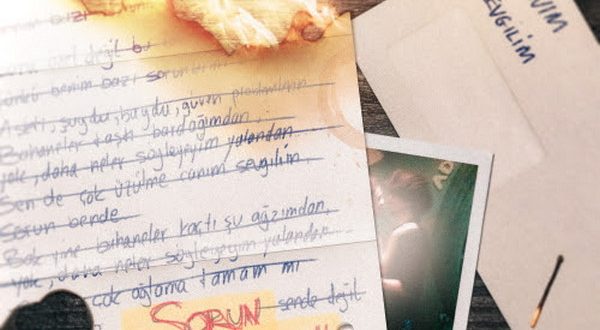 değil bu
benim bazı
şuydu, buydu, güven
Bahaneler taştı bardağımdan,
yok, daha neler söyleyeyim yalandan
Sen de çok üzülme canım sevgilim
Sorun bende
Bak yine bahaneler kaçtı şu ağzımdan,
yok, daha neler söyleyeyim yalandan
çok ağlama tamam mı
SORUN sende değil
NIM
EVGİLİM
AD